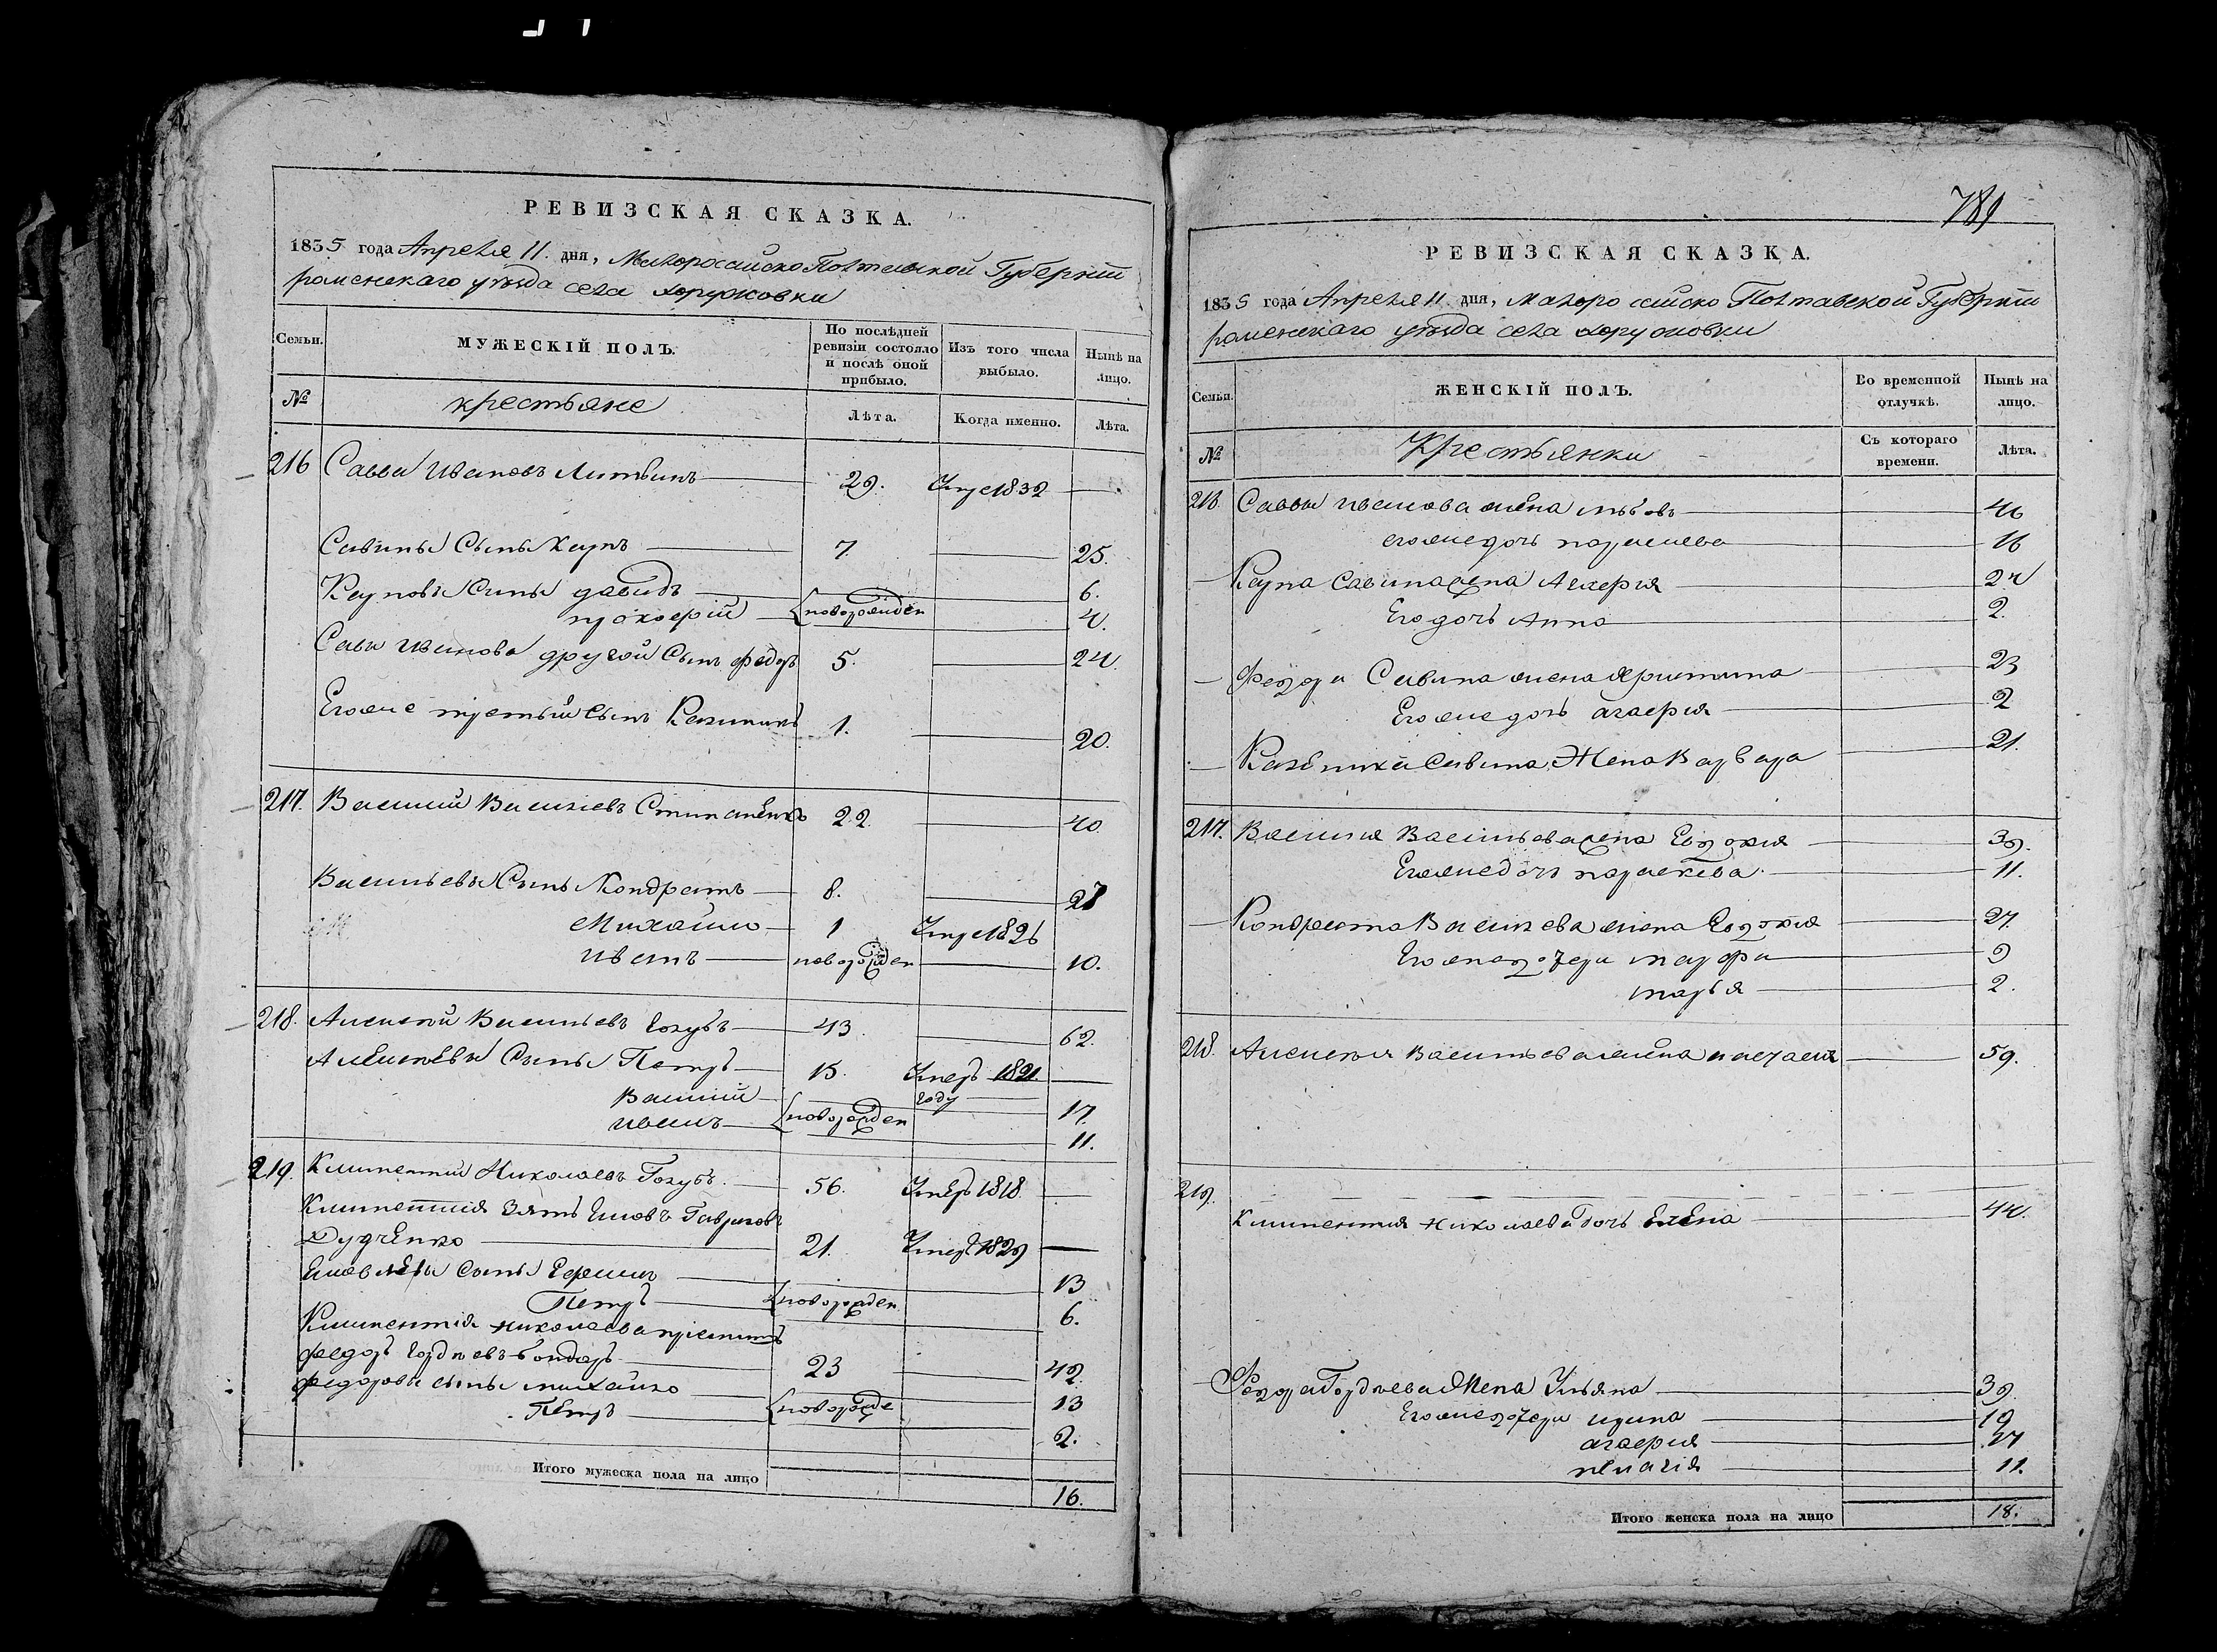 РЕВИЗСКАЯ СКАЗКА.
1835 года Апреля 11. дня, Малоросийско Полтавской Губерніи
роменского уѣзда села хоружовки
Семьи.
МУЖЕСКІЙ ПОЛЪ.
По послѣдней ревизіи состояло и послѣ оной прибыло.
Изъ того числа выбыло.
Нынѣ на лицо.
№
крестьяне
Лѣта.
Когда именно.
Лѣта.
216 Савва Ивановъ Литвинъ 29. Умре 1832
Савины Сыны Карпъ 7. 25.
Карповы Сины давидъ 6.
прокофій новорожден 4.
Савы Иванова другой Сынъ федоръ 5. 24.
Егоже третый Сынъ Калиникъ 1. 20.
217. Василий Василіевъ Стипаненко 22. 40.
Васильевы Сыны Кондратъ 8. 27
Михайло 1 Умре 1826
иванъ новорожден 10.
218. Алексей Васильевъ Голубъ 43. 62.
Алексеевы Сыны Петръ 15. Умеръ 1821. году
Василий 17.
иванъ новорожден 11.
219. Климентий Николаевъ Голубъ. 56. Умеръ 1818.
Климентия Зять Иовъ Гавриловъ
Дудченко 21. Умеръ 1829
Сыны Ефимъ 13
Петръ новорожден 6.
Климентія николаева приемишъ
федоръ Гордѣевъ Бондарь 23 42.
федоровы сыны михайло 13
Петръ новорожде 2.
Итого мужеска пола на лицо 16.
789
РЕВИЗСКАЯ СКАЗКА.
1835 года Апреля 11. дня, Малоросийско Полтавской Губерніи
роменского уѣзда села хоружовки
Семьи.
ЖЕНСКІЙ ПОЛЪ.
Во временной отлучкѣ.
Нынѣ на лицо.
№
Крестьянки
Съ котораго времени.
Лѣта.
216. Саввы иванова жена любовь 46
егожедочь параскева 16
Карпа Савина жена Агафия 24
Его дочь Анна 2.
Федора Савина жена христина 23
Егоже дочь агафия 2
Калиника Савина Жена Варвара 21.
217. Василия Васильева жена Евдокия 39.
Егоже дочь параскева 11.
Кондрата Василева жена Евдокия 27.
Егоже дочери марфа 9
марья 2.
218. Алексея Васильева жена настасия 59.
219.
Климентия николаева дочь Елена 44.
Федора Гордѣева Жена Ульяна 39.
Егоже дочери ирина 19
агафия 17
пелагія 11.
Итого женска пола на лицо 18.